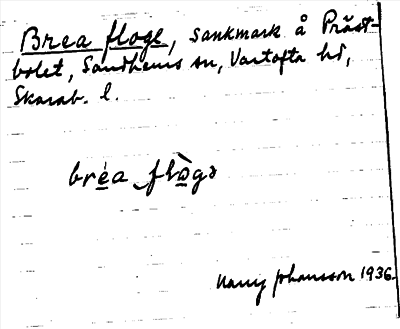 Brea floge, sankmark å Präst-
bolet, Sandhems sn, Vartofta hd,
Skarab. l.
bréa flògə
Nanny Johansson 1936.